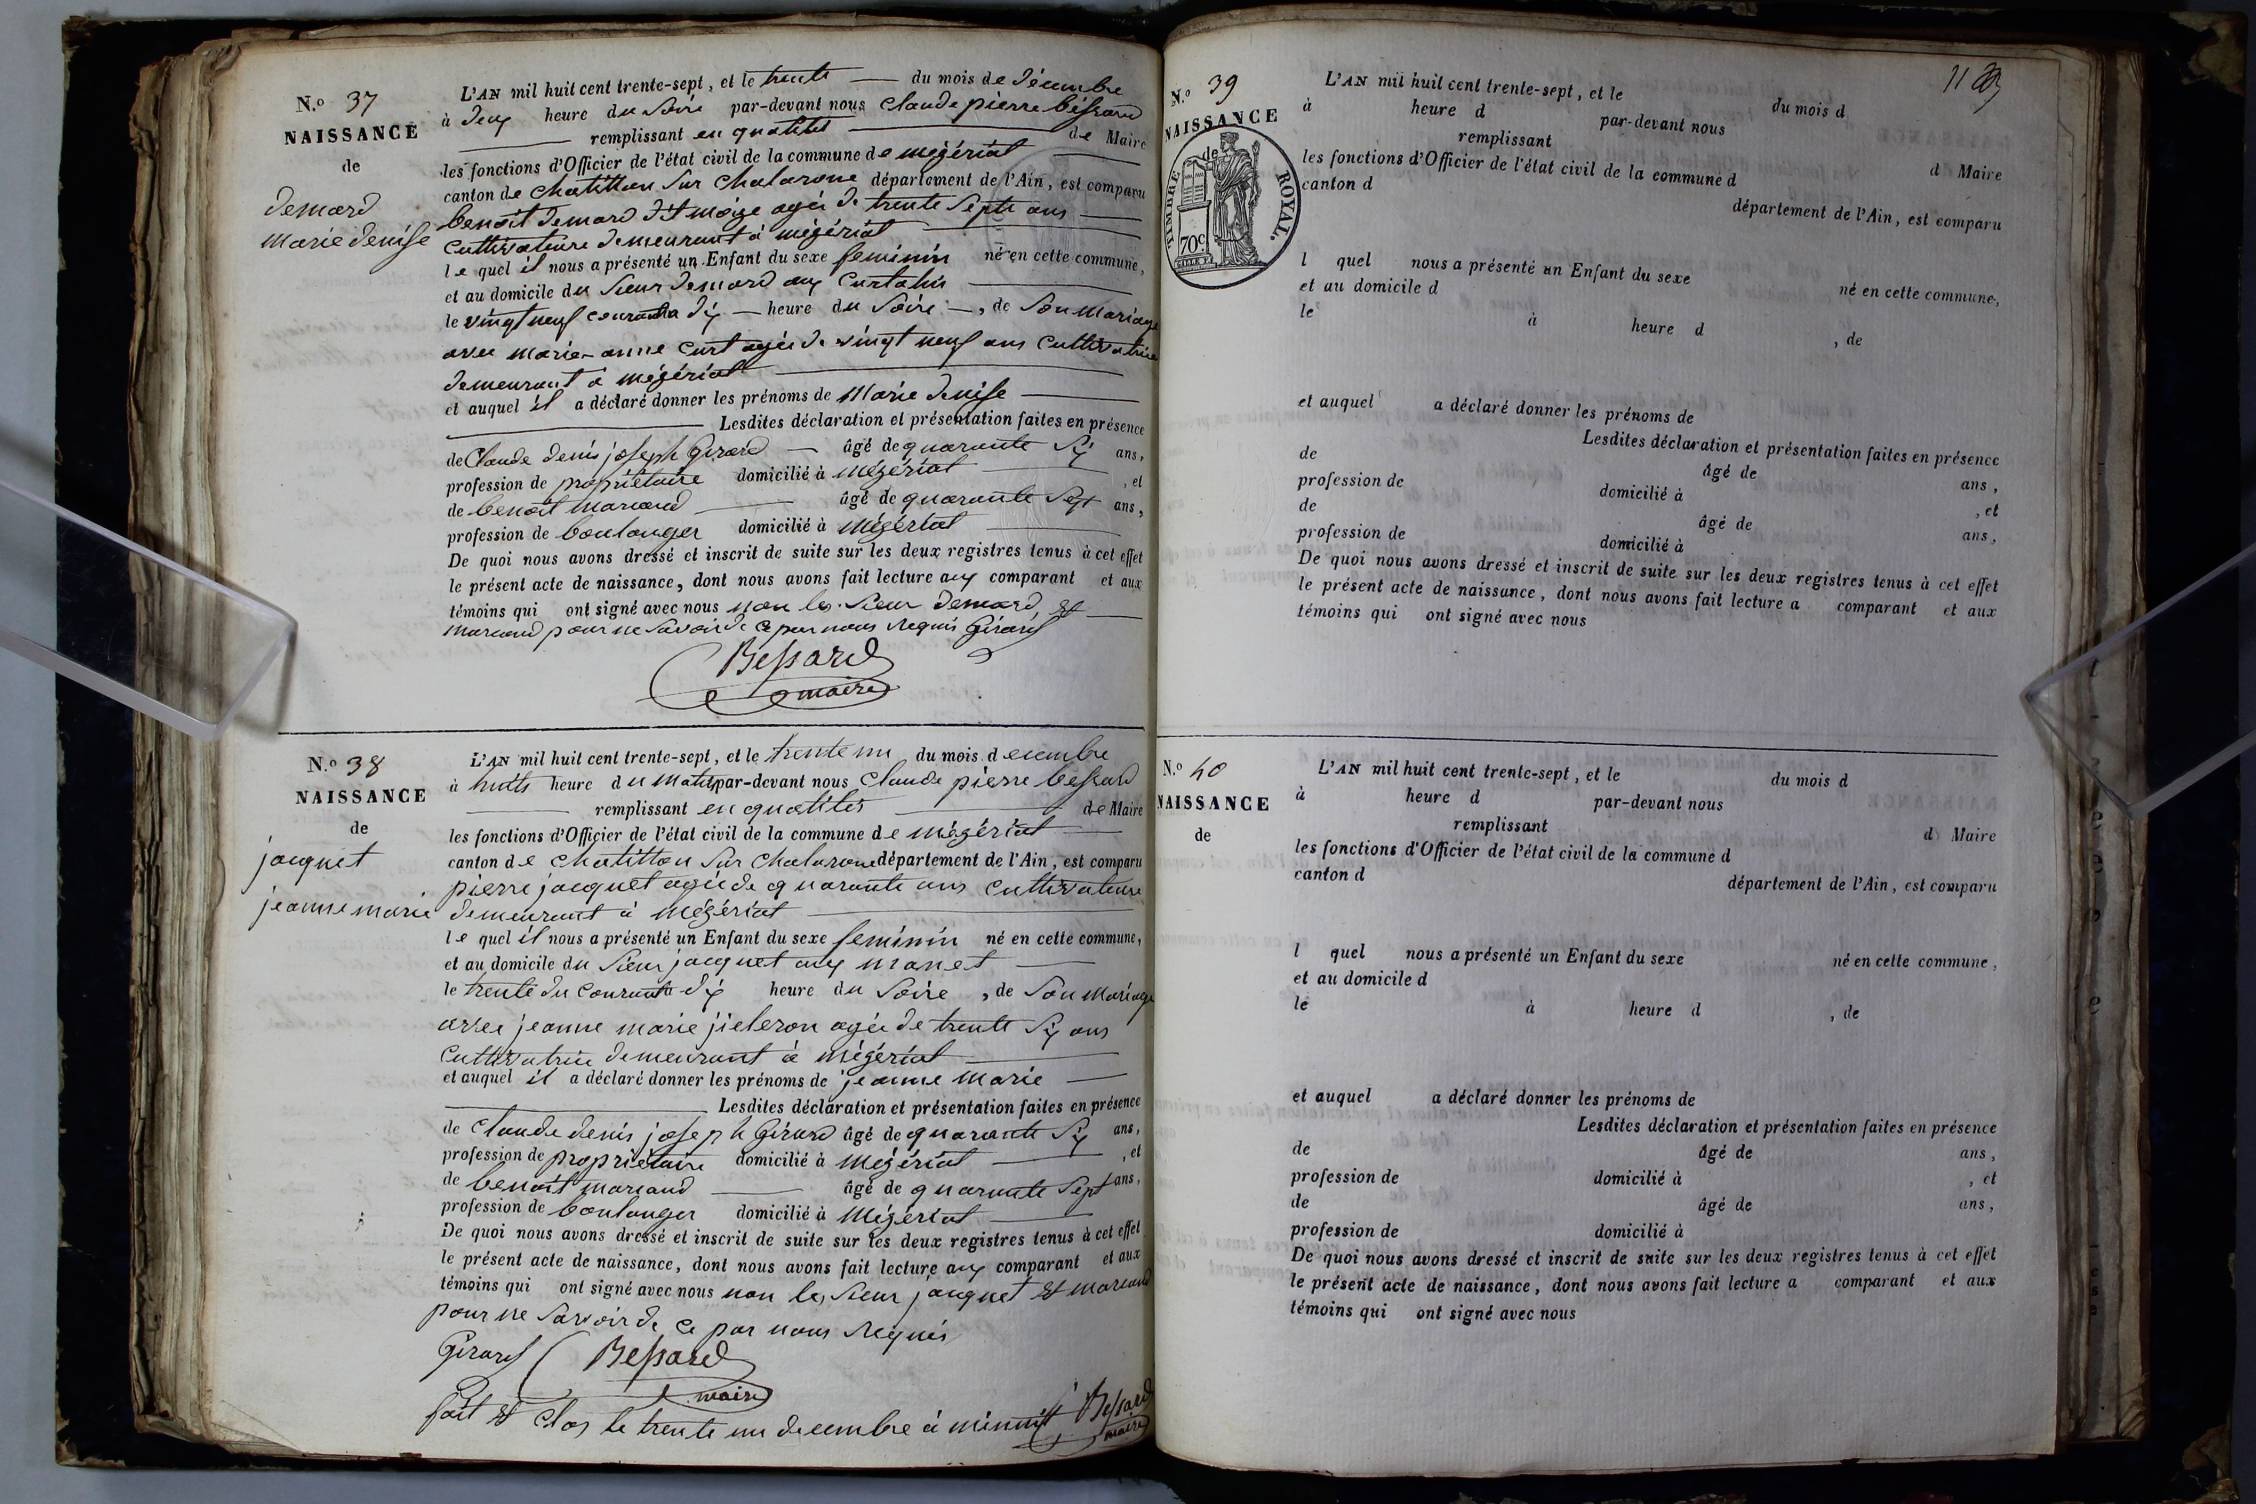 N.º 37
NAISSANCE
de
demard
marie denise
L'AN mil huit cent trente-sept, et le trente du mois de décembre
à deux heure du soire par-devant nous claude pierre bessard
remplissant en qualités de Maire
les fonctions d'Officier de l'état civil de la commune de mégériat
canton de chatillon sur chalarone département de l'Ain, est comparu
benoit demard dit moize agée de trente septs ans
cultivateure demeurant à mégériat
le quel il nous a présenté un Enfant du sexe feminin né en cette commune,
et au domicile du sieur demard aux
le vingt neuf courant à dix heure du soire, de son mariage
avec marie-anne curt agée de vingt neuf ans cultivatrice
demeurant à mégériat
et auquel il a déclaré donner les prénoms de marie denise
Lesdites déclaration et présentation faites en présence
de Claude denis joseph Girard âgé de quarante six ans,
profession de propriétaire domicilié à mégériat, et
de benoit marcand âgé de quarante sept ans,
profession de boulanger domicilié à mégériat
De quoi nous avons dressé et inscrit de suite sur les deux registres tenus à cet effet
le présent acte de naissance, dont nous avons fait lecture aux comparant et aux
témoins qui ont signé avec nous non les sieur demard, et
marcand pour ne savoir de ce par nous requis Girard
Bessard
maire
N.º 38
NAISSANCE
de
jacquet
jeanne marie
L'AN mil huit cent trente-sept, et le trente un du mois decembre
à huits heure du matin par-devant nous claude pierre bessard
remplissant en qualités de Maire
les fonctions d'Officier de l'état civil de la commune de mégériat
canton de chatillon sur chalarone département de l'Ain, est comparu
pierre jacquet agée de quarante ans cultivateure
demeurant à mégériat
le quel il nous a présenté un Enfant du sexe feminin né en cette commune,
et au domicile du sieur jacquet aux manet
le trente du courant à dix heure du soire, de son mariage
avec jeanne marie agée de trente six ans
cultivatrice demeurant à mégériat
et auquel il a déclaré donner les prénoms de jeanne marie
Lesdites déclaration et présentation faites en présence
de claude denis joseph Girard âgé de quarante six ans,
profession de propriétaire domicilié à mégériat, et
de benoit marcand âgé de quarante sept ans,
profession de boulanger domicilié à mégériat
De quoi nous avons dressé et inscrit de suite sur les deux registres tenus à cet effet
le présent acte de naissance, dont nous avons fait lecture aux comparant et aux
témoins qui ont signé avec nous non les sieur jacquet et marcand
pour ne savoir de ce par nous requis
Girard Bessard
maire
fait et clos le trente un decembre à minuit Bessard
maire
11
N.º 39
NAISSANCE
de
TIMBRE ROYAL.
70c
L'AN mil huit cent trente-sept, et le du mois d
à heure d par-devant nous
remplissant d Maire
les fonctions d'Officier de l'état civil de la commune d
canton d département de l'Ain, est comparu
l quel nous a présenté un Enfant du sexe né en cette commune,
et au domicile d
le à heure d , de
et auquel a déclaré donner les prénoms de
Lesdites déclaration et présentation faites en présence
de âgé de ans,
profession de domicilié à , et
de âgé de ans,
profession de domicilié à
De quoi nous avons dressé et inscrit de suite sur les deux registres tenus à cet effet
le présent acte de naissance, dont nous avons fait lecture a comparant et aux
témoins qui ont signé avec nous
N.º 40
NAISSANCE
de
L'AN mil huit cent trente-sept, et le du mois d
à heure d par-devant nous
remplissant d Maire
les fonctions d'Officier de l'état civil de la commune d
canton d département de l'Ain, est comparu
l quel nous a présenté un Enfant du sexe né en cette commune,
et au domicile d
le à heure d , de
et auquel a déclaré donner les prénoms de
Lesdites déclaration et présentation faites en présence
de âgé de ans,
profession de domicilié à , et
de âgé de ans,
profession de domicilié à
De quoi nous avons dressé et inscrit de suite sur les deux registres tenus à cet effet
le présent acte de naissance, dont nous avons fait lecture a comparant et aux
témoins qui ont signé avec nous